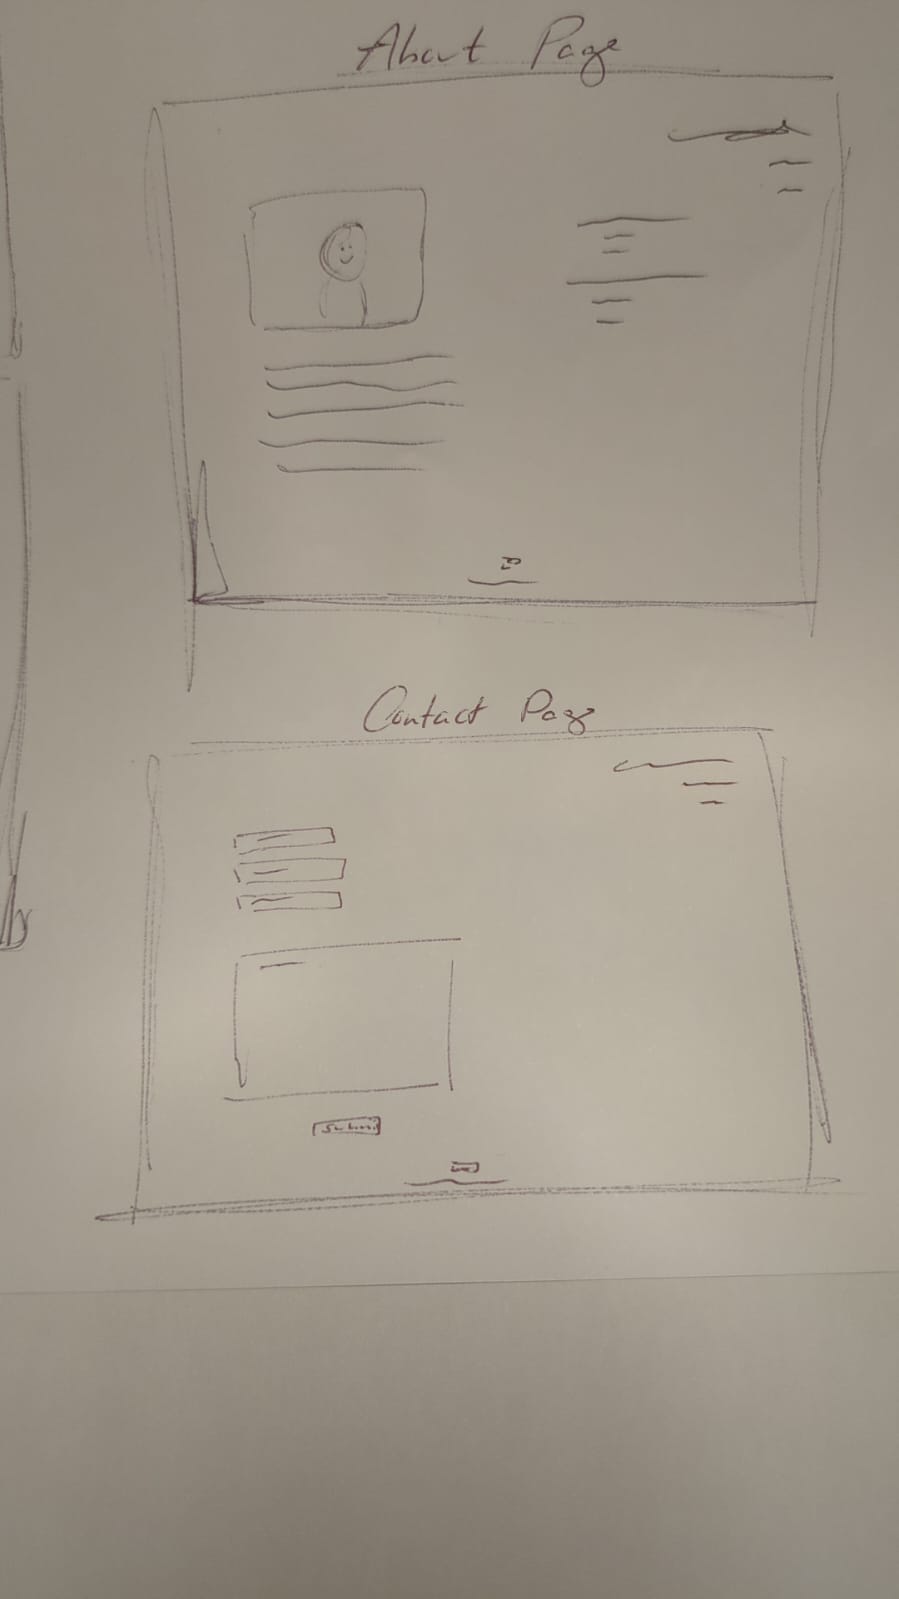 About Page
Contact Page
Submit